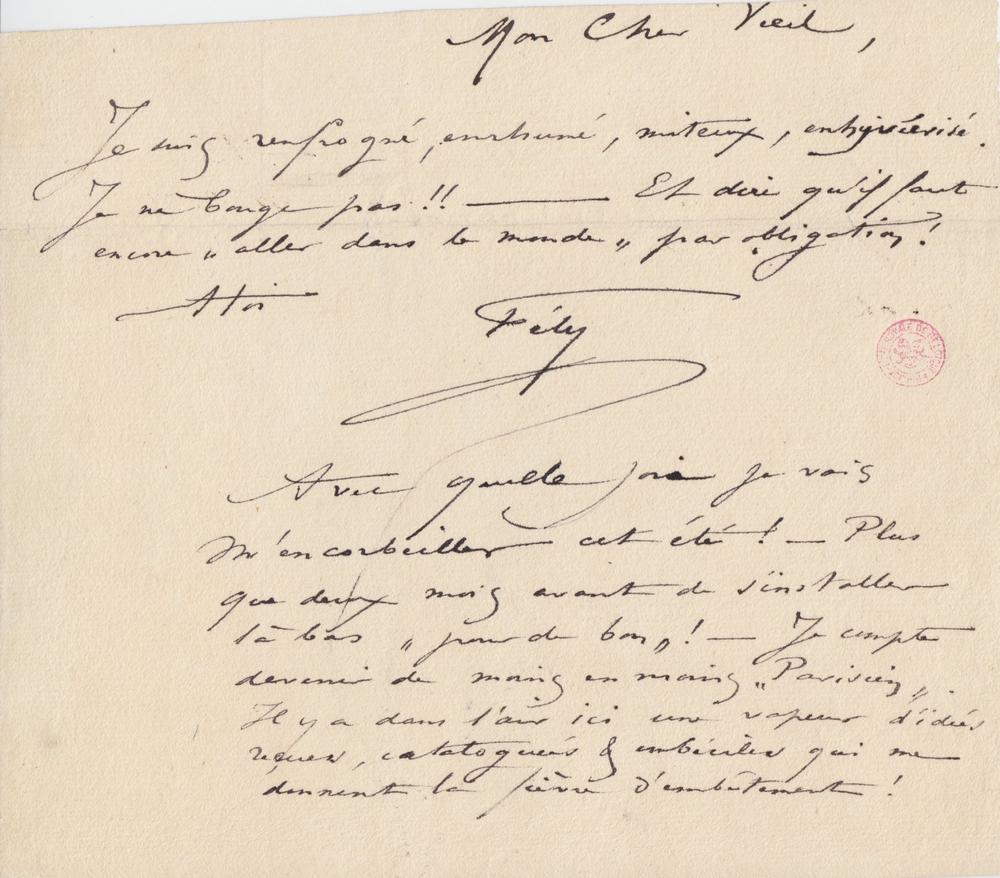 Mon Cher Vieil,
Je suis renfrogné, enrhumé, miteux,
Je ne bouge pas !! — Et dire qu'il faut
encore „aller dans le monde„ par obligation !
A toi
Fély
Avec quelle joie je vais
m'encorbeiller cet été ! — Plus
que deux mois avant de s'installer
là bas „pour de bon„ ! — Je compte
devenir de moins en moins „Parisien„.
Il y a dans l'air ici une vapeur d'idées
reçues, cataloguées & imbéciles qui me
donnent la fièvre d'embêtement !